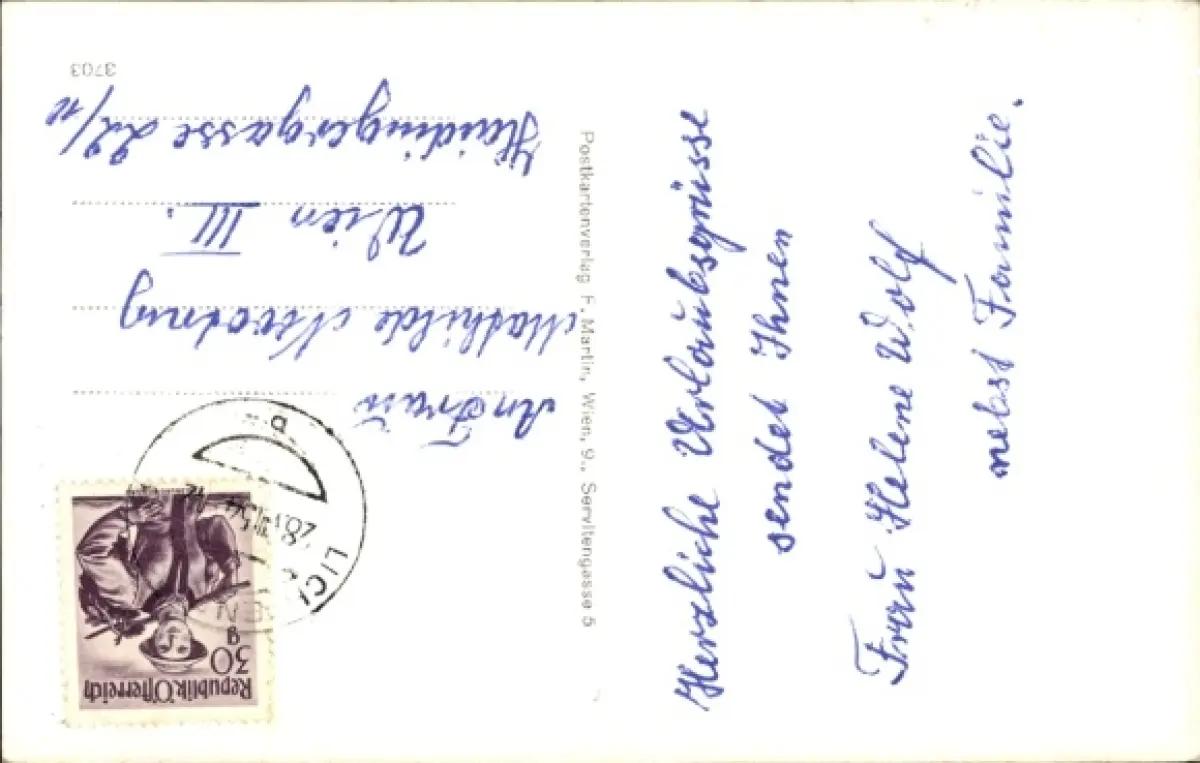 Herzliche Urlaubsgrüsse
sendet Ihnen
Frau Helene Wolf
nebst Familie.
Postkartenverlag F. Martin, Wien, 9., Servitengasse 5
Republik Österreich
30
g
28.
a
An Frau
Mathilde
Wien III.
Haidingergasse 22/11
3703